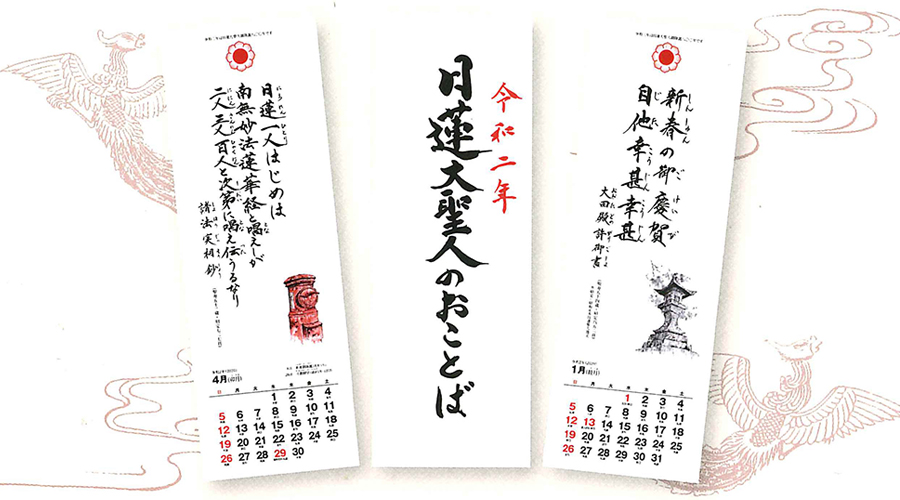 日蓮一人はじめは
南無妙法蓮華経と唱えしが
二人三人百人と次第に唱え伝うるなり
諸法実相鈔
4月
日 月 火 水 木 金 土
1 2 3 4
5 6 7 8 9 10 11
12 13 14 15 16 17 18
19 20 21 22 23 24 25
26 27 28 29 30
令和二年
日蓮大聖人のおことば
新春の御慶賀
自他幸甚幸甚
太田殿許御書
1月
日 月 火 水 木 金 土
1 2 3 4
5 6 7 8 9 10 11
12 13 14 15 16 17 18
19 20 21 22 23 24 25
26 27 28 29 30 31